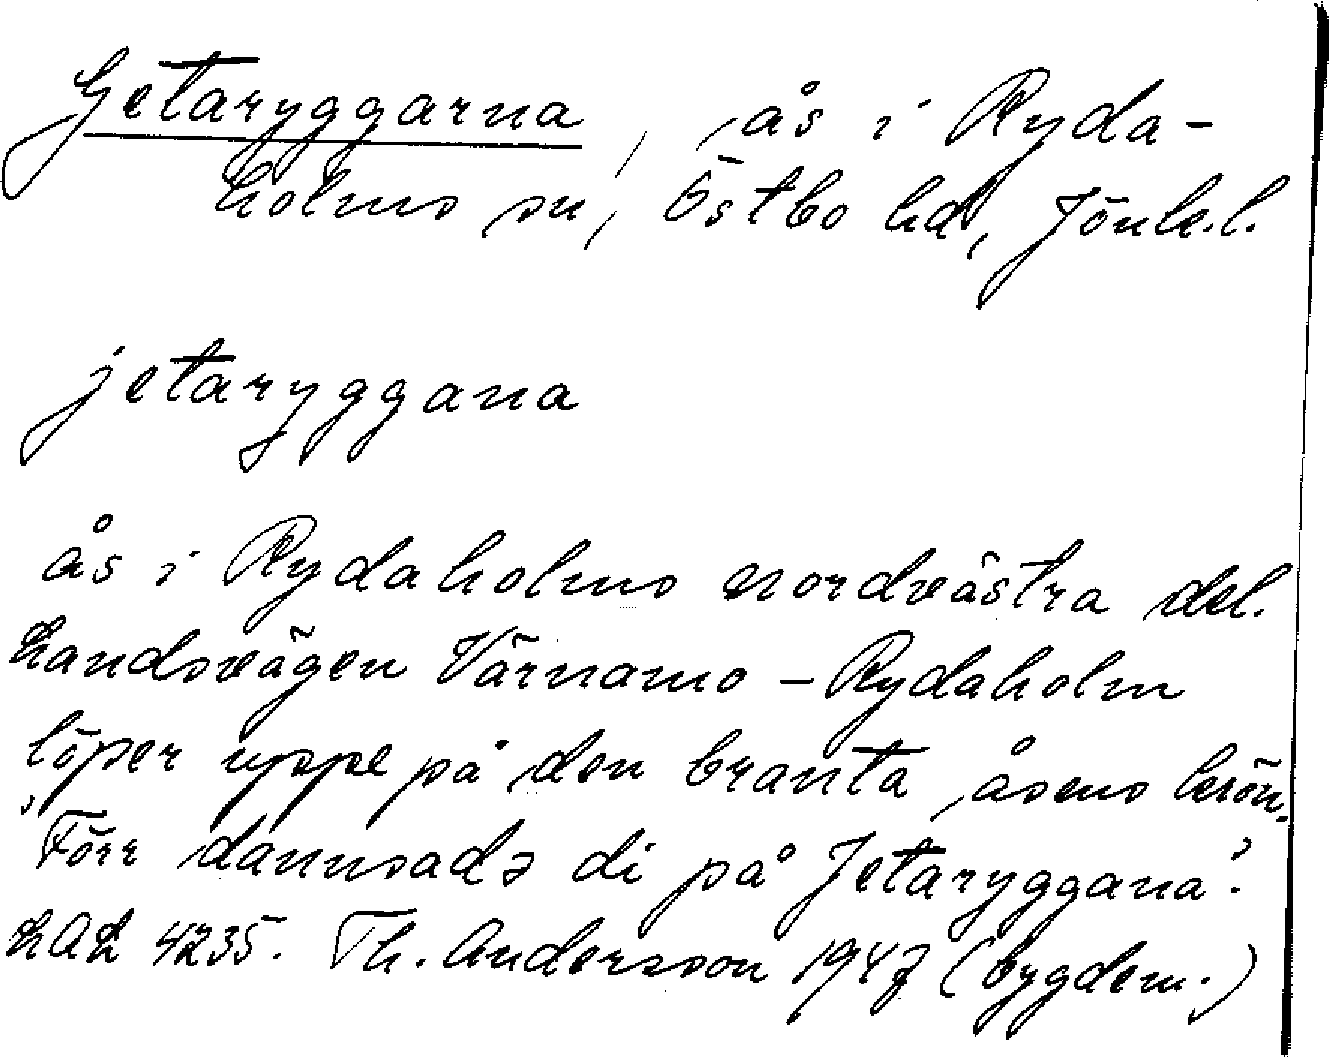 Getaryggarna, ås i Ryda-
holms sn, Östbo hd, Jönk.l.
jetaryggana
ås i Rydaholms nordvästra del.
Landsvägen Värnamo - Rydaholm
löper uppe på den branta åsens krön.
'Förr dannsadə di på Jetaryggana'.
LAL 4235. Th. Andersson 1947 (bygdem.)